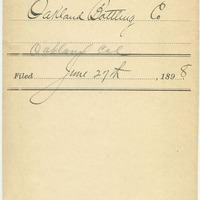 Oakland Bottling Co
Oakland Cal
Filed June 27th, 1898